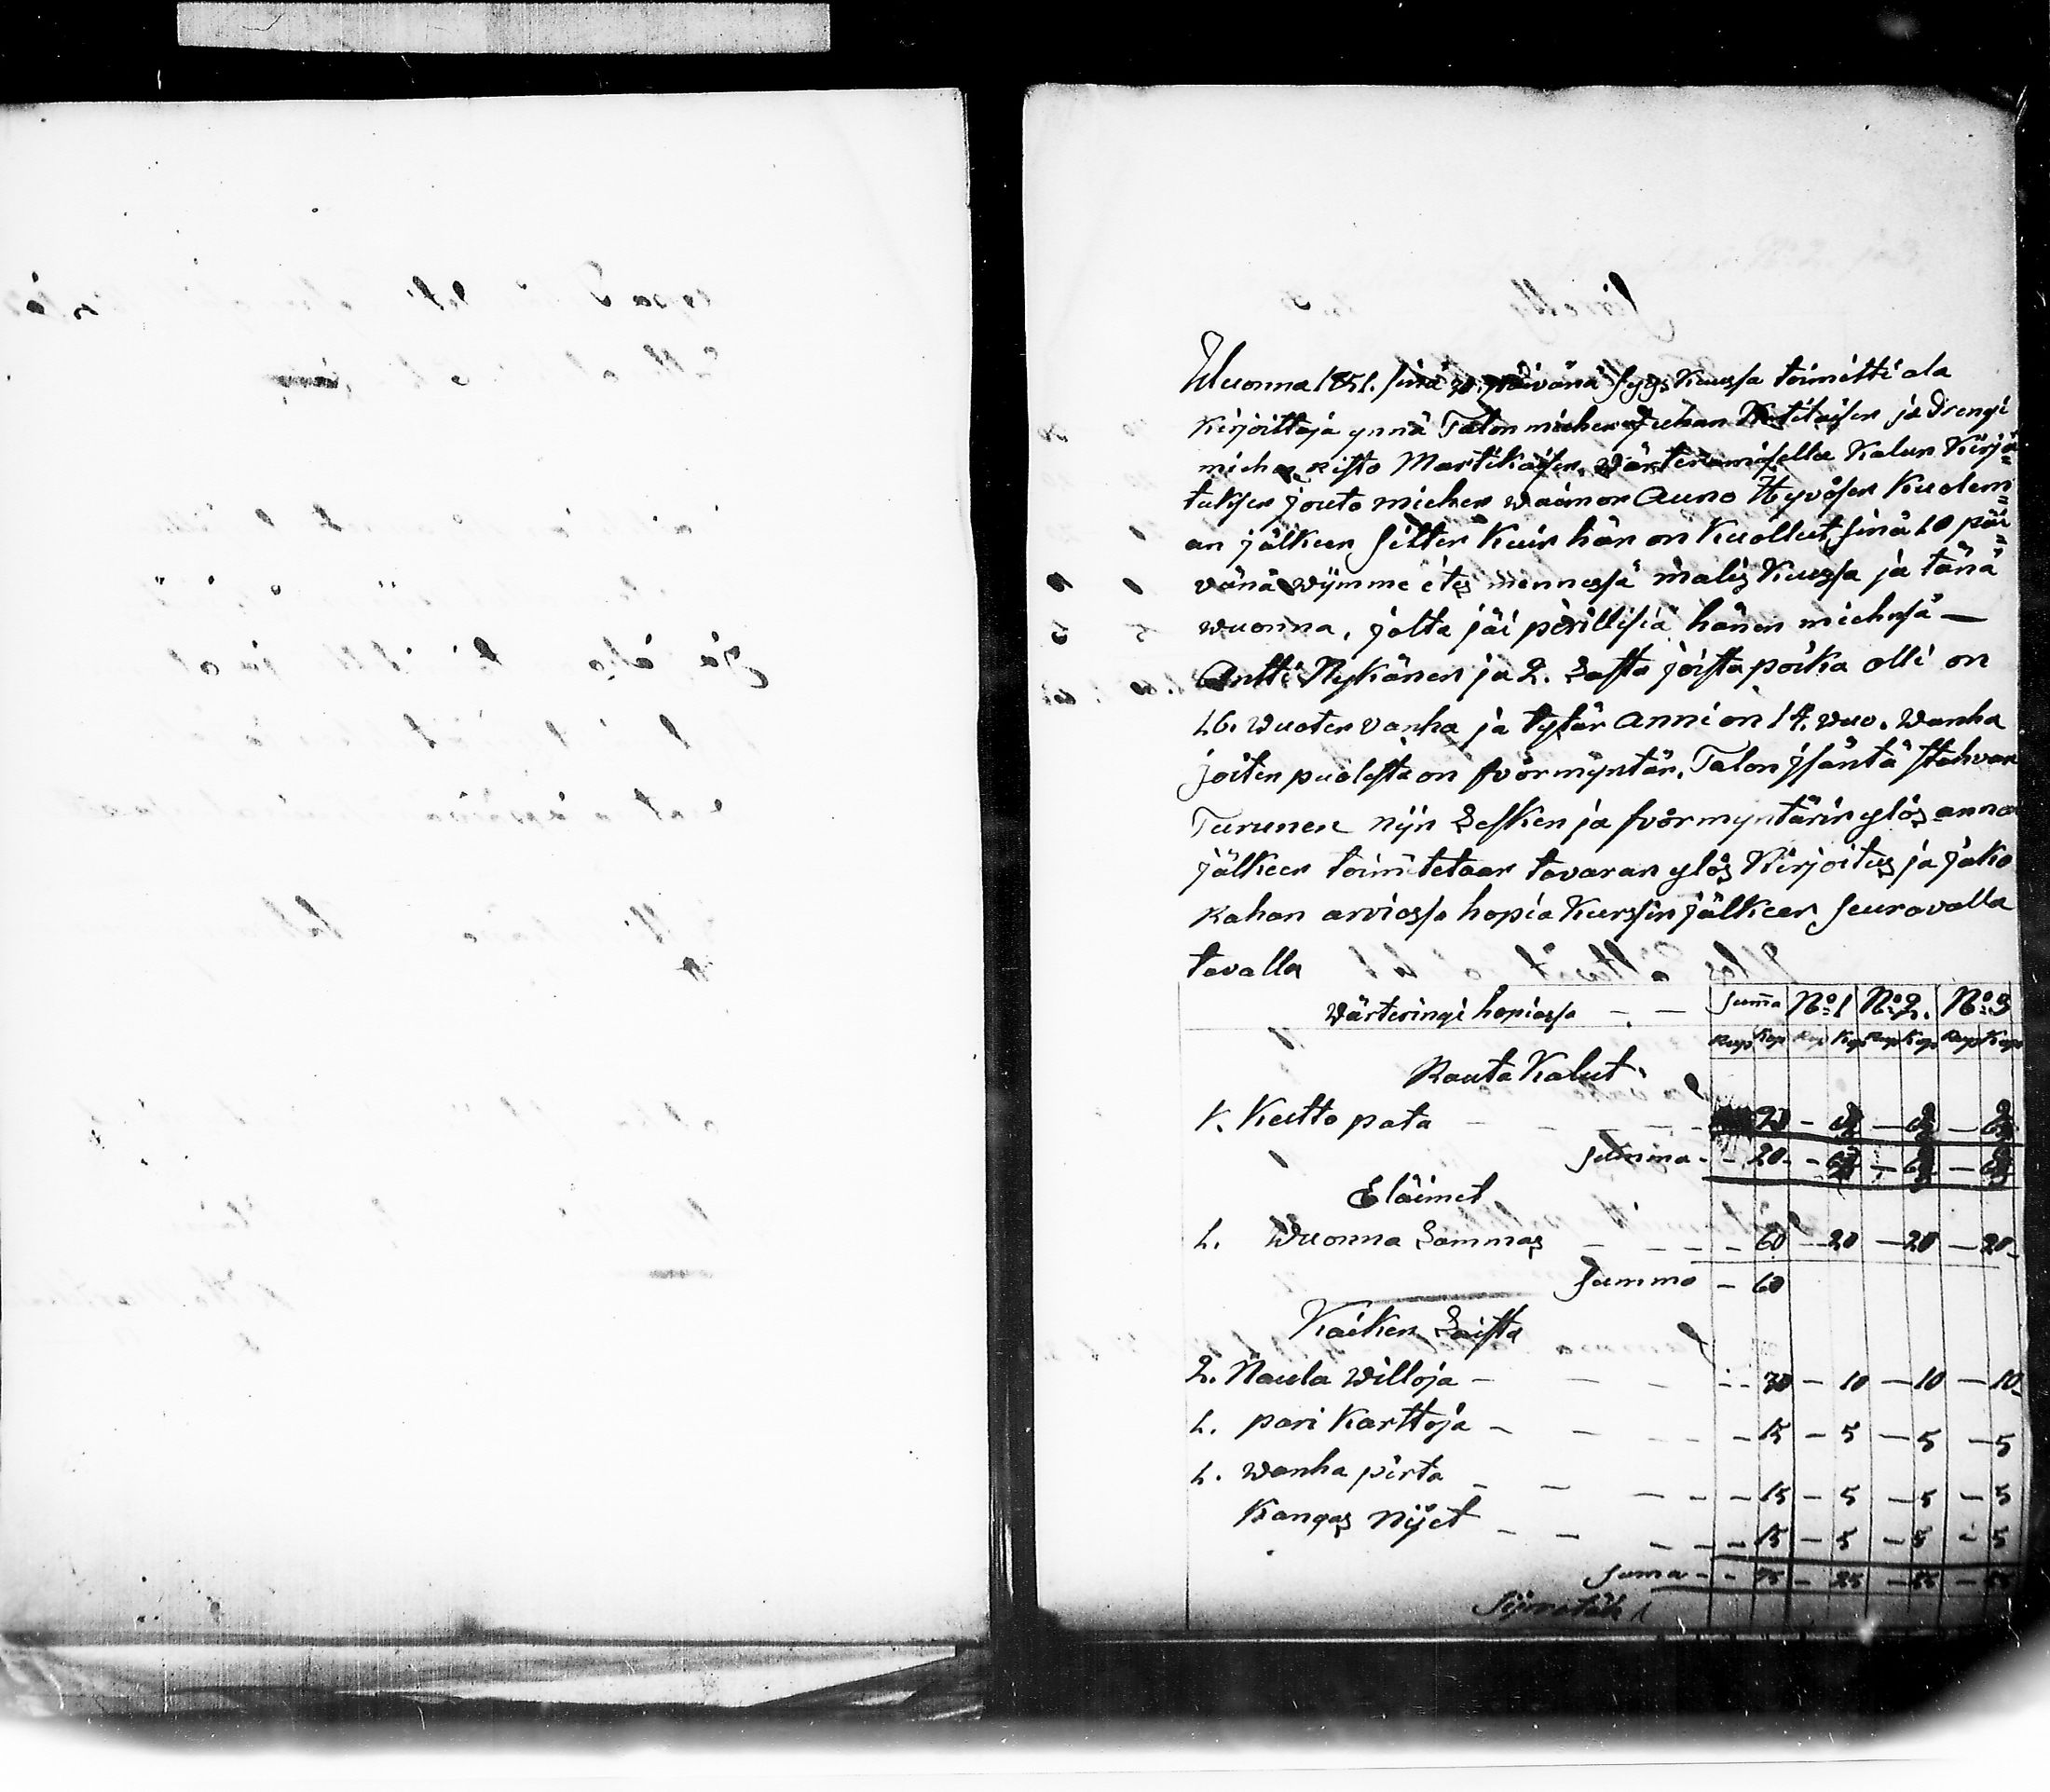 Wuonna 1851. sinä 20. päivänä syys Kuussa toimitti ala
Kirjoittaja ynnä Talon miehen Juhan ja Drengi
miehen risto Martikaisen, wärteramisella Kalun Kirjo=
tuksen jouto miehen waimon Auno Hyvösen Kuolem=
an jälkeen sitten Kuin hän on Kuollut, sinä 10 päi=
vänä wiimme etes mennessä malis Kuussa ja tänä
wuonna, jolta jäi perillisiä hänen miehesä —
Antti Nykänen ja 2. Lasta joista poika olli on
16. wuoten vanha ja tytär anni on 14. wuo. wanha
joiten puolesta on fvörmyntär. Talon jsäntä stahvan
Turunen nijn Lesken ja fvörmyntärin ylös annon
jälkeen toimitetaan tavaran ylös Kirjoitus ja jako
Rahan arviossa hopia Kurssin jälkeen seuravalla
tavalla
wärteringi hopiassa — — Summa No 1 No 2. No 3
Rup Kop Rup Kop Rup Kop Rup Kop
Rauta Kalut
1. Keitto pata — — — 20 —
Summa — 20 —
Eläimet
1. Wuonna Lammas — — — 60 — 20 — 20 — 20
Summa — 60
Kaiken Laista
2. Naula Willoja — — — 30 — 10 — 10 — 10
1. pari Karttoja — — — 15 — 5 — 5 — 5
1. wanha pirta — — — 15 — 5 — 5 — 5
Kangas Nijet — — — 15 — 5 — 5 — 5
Suma — — 75 — 25 — 25 — 25